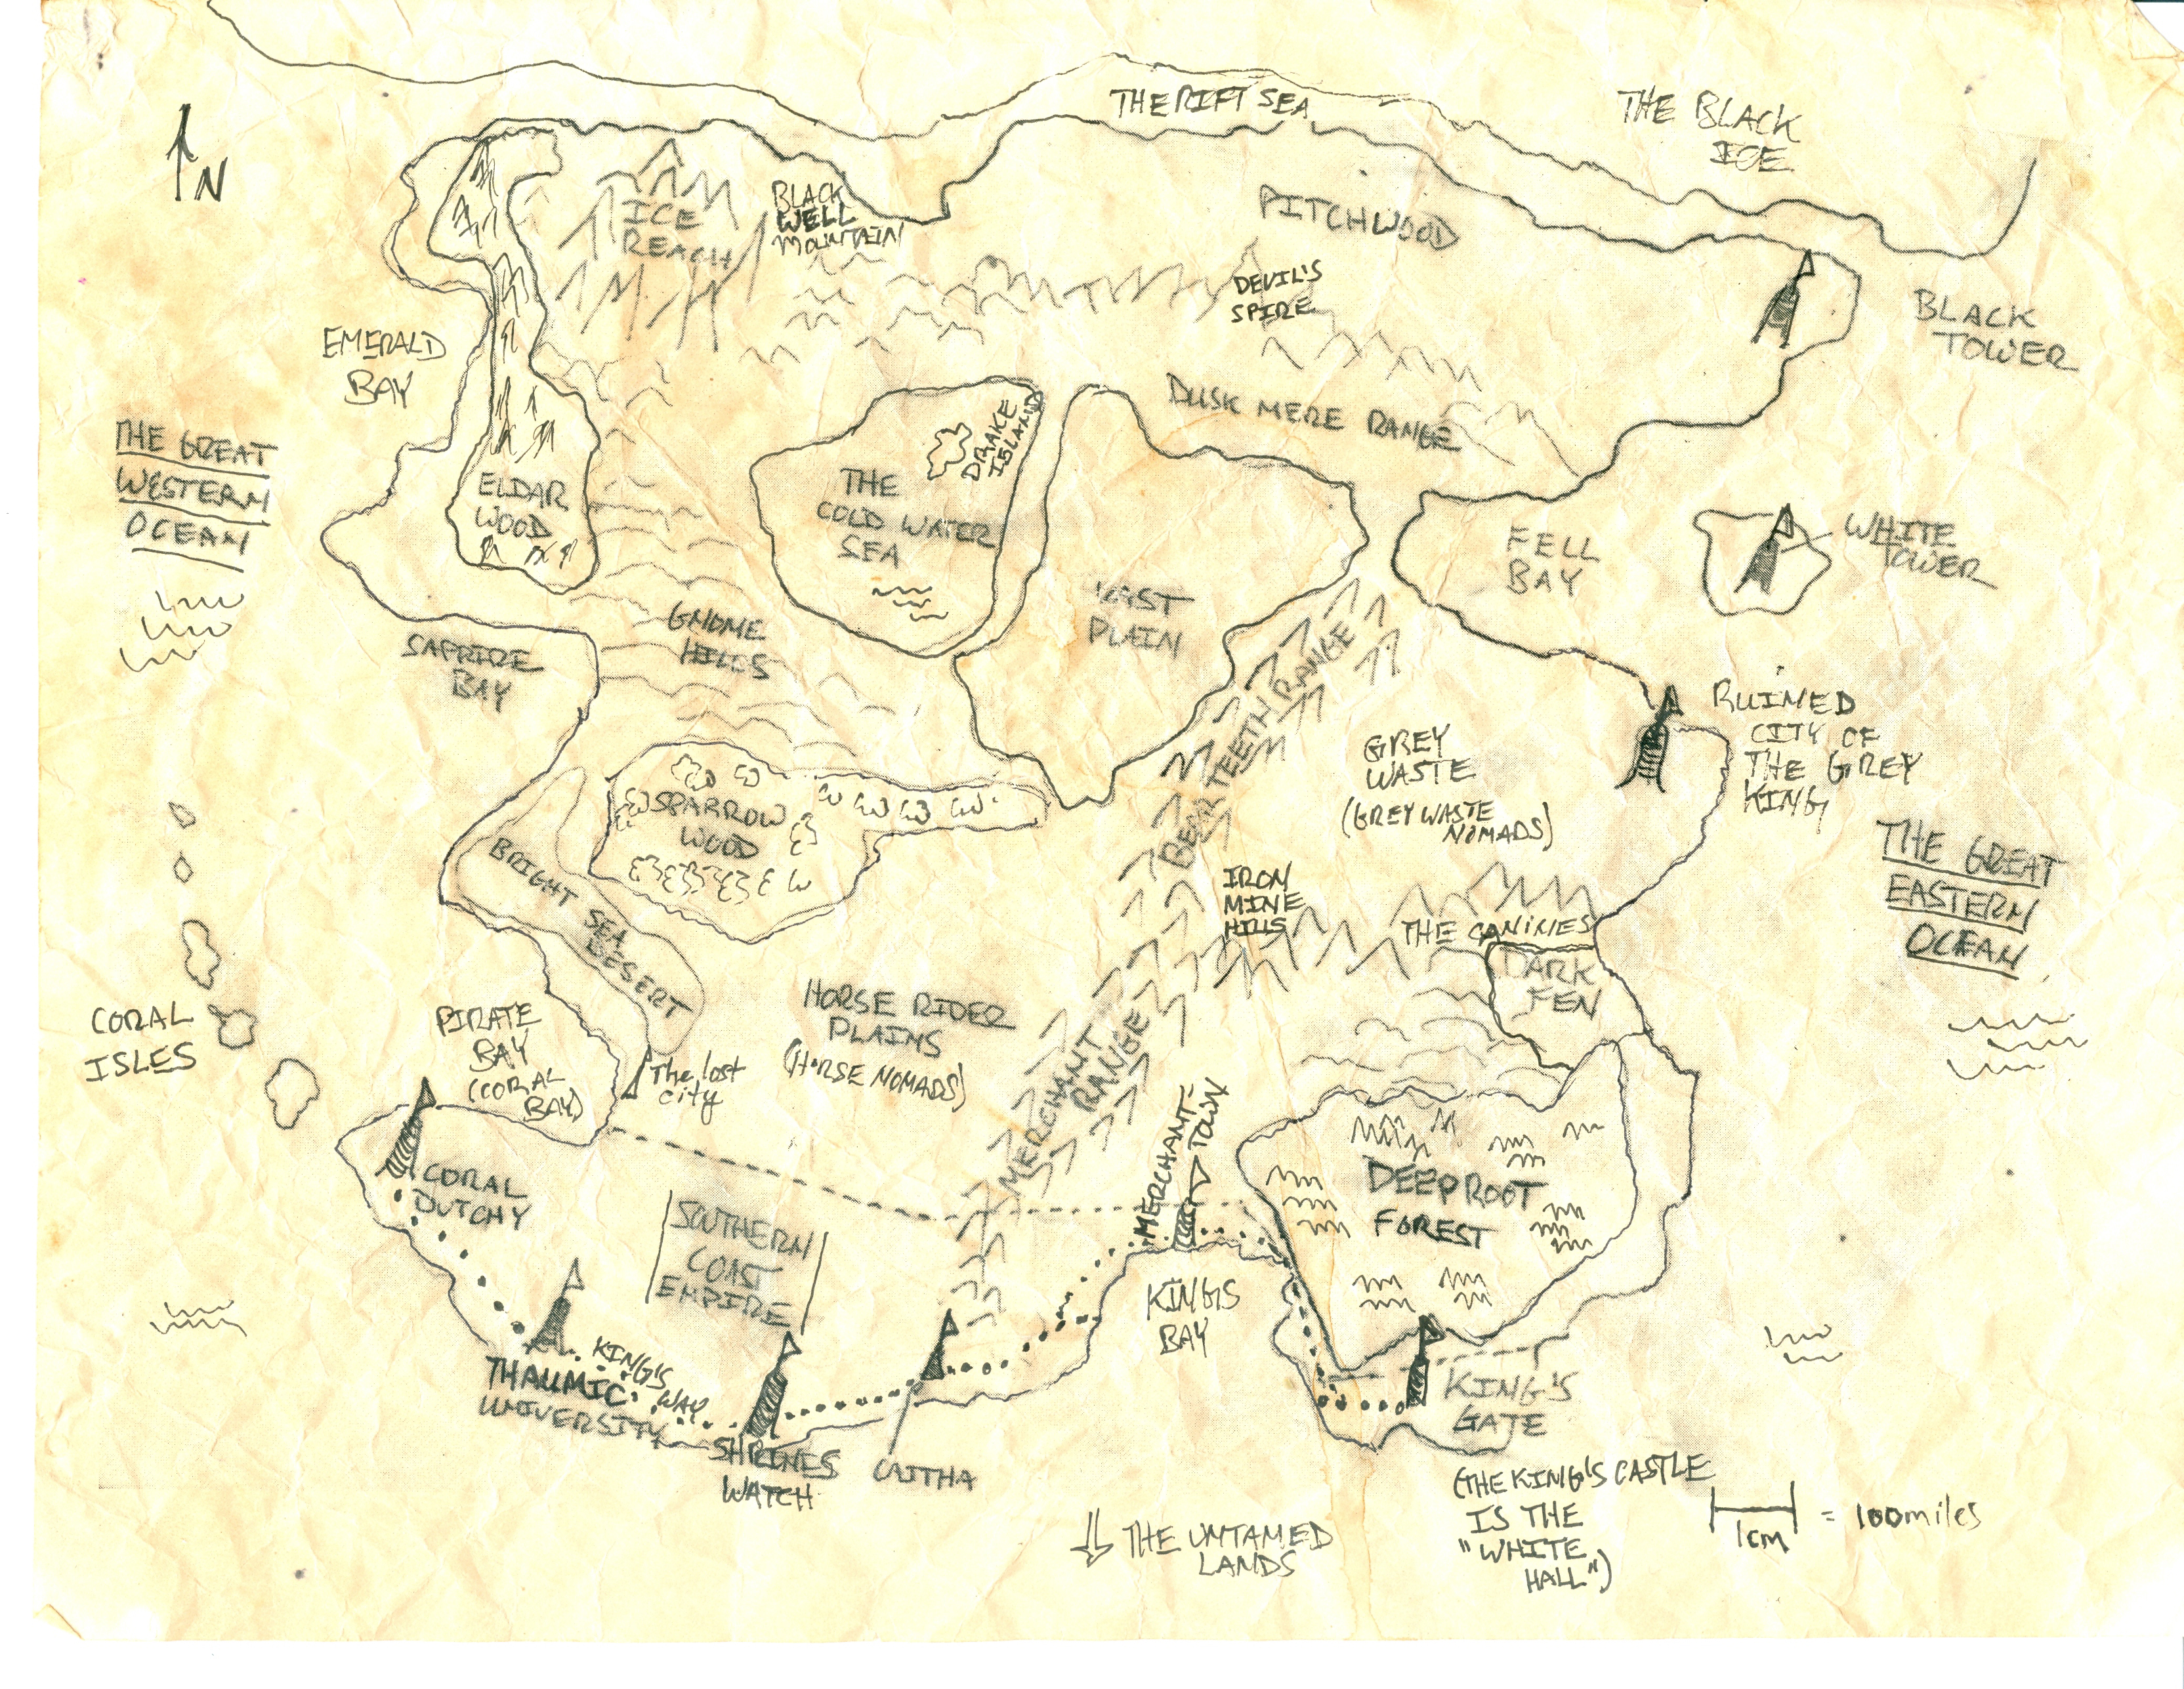 THE RIFT SEA
THE BLACK
ICE
N
ICE
REACH
BLACK
WELL
MOUNTAIN
PITCHWOOD
DEVIL'S
SPIRE
BLACK
TOWER
EMERALD
BAY
DUSK MERE RANGE
DRAKE
ISLAND
THE GREAT
WESTERN
OCEAN
ELDAR
WOOD
THE
COLD WATER
SEA
FELL
BAY
WHITE
TOWER
VAST
PLAIN
GNOME
HILLS
SAPPIRE
BAY
BEAR TEETH RANGE
RUINED
CITY OF
THE GREY
KING
GREY
WASTE
(GREY WASTE
NOMADS)
SPARROW
WOOD
BRIGHT SEA
DESERT
THE GREAT
EASTERN
OCEAN
IRON
MINE
HILLS
THE CANINES
DARK
FEN
CORAL
ISLES
PIRATE
BAY
(CORAL
BAY)
HORSE RIDER
PLAINS
(HORSE NOMADS)
The lost
city
MERCHANT
RANGE
MERCHANT-
TOWN
CORAL
DUTCHY
SOUTHERN
COAST
EMPIRE
DEEPROOT
FOREST
KINGS
BAY
KING'S
WAY
THAUMIC
UNIVERSITY
KING'S
GATE
SHRINES
WATCH
(THE KING'S CASTLE
IS THE
"WHITE
HALL")
THE UNTAMED
LANDS
1cm = 100miles